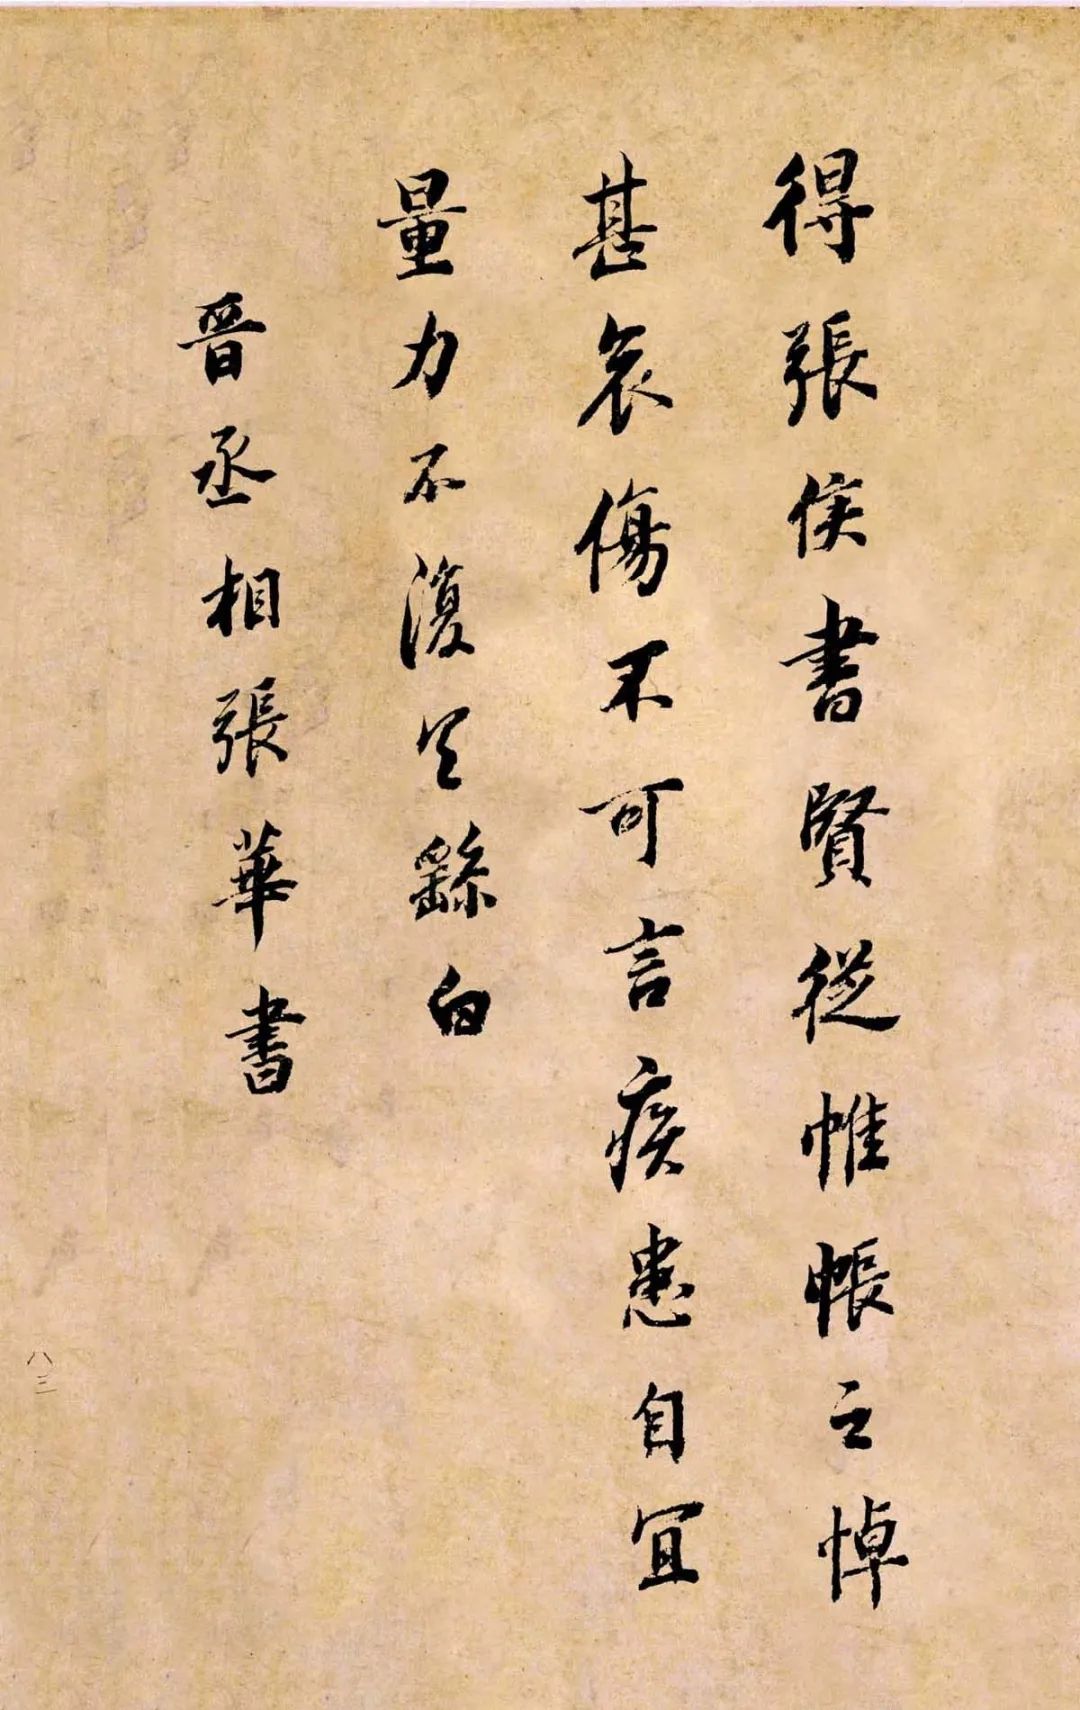 得張侯書賢從帷帳之悼
甚哀傷不可言疾患自宜
量力不復具繇白
晉丞相張華書
八三